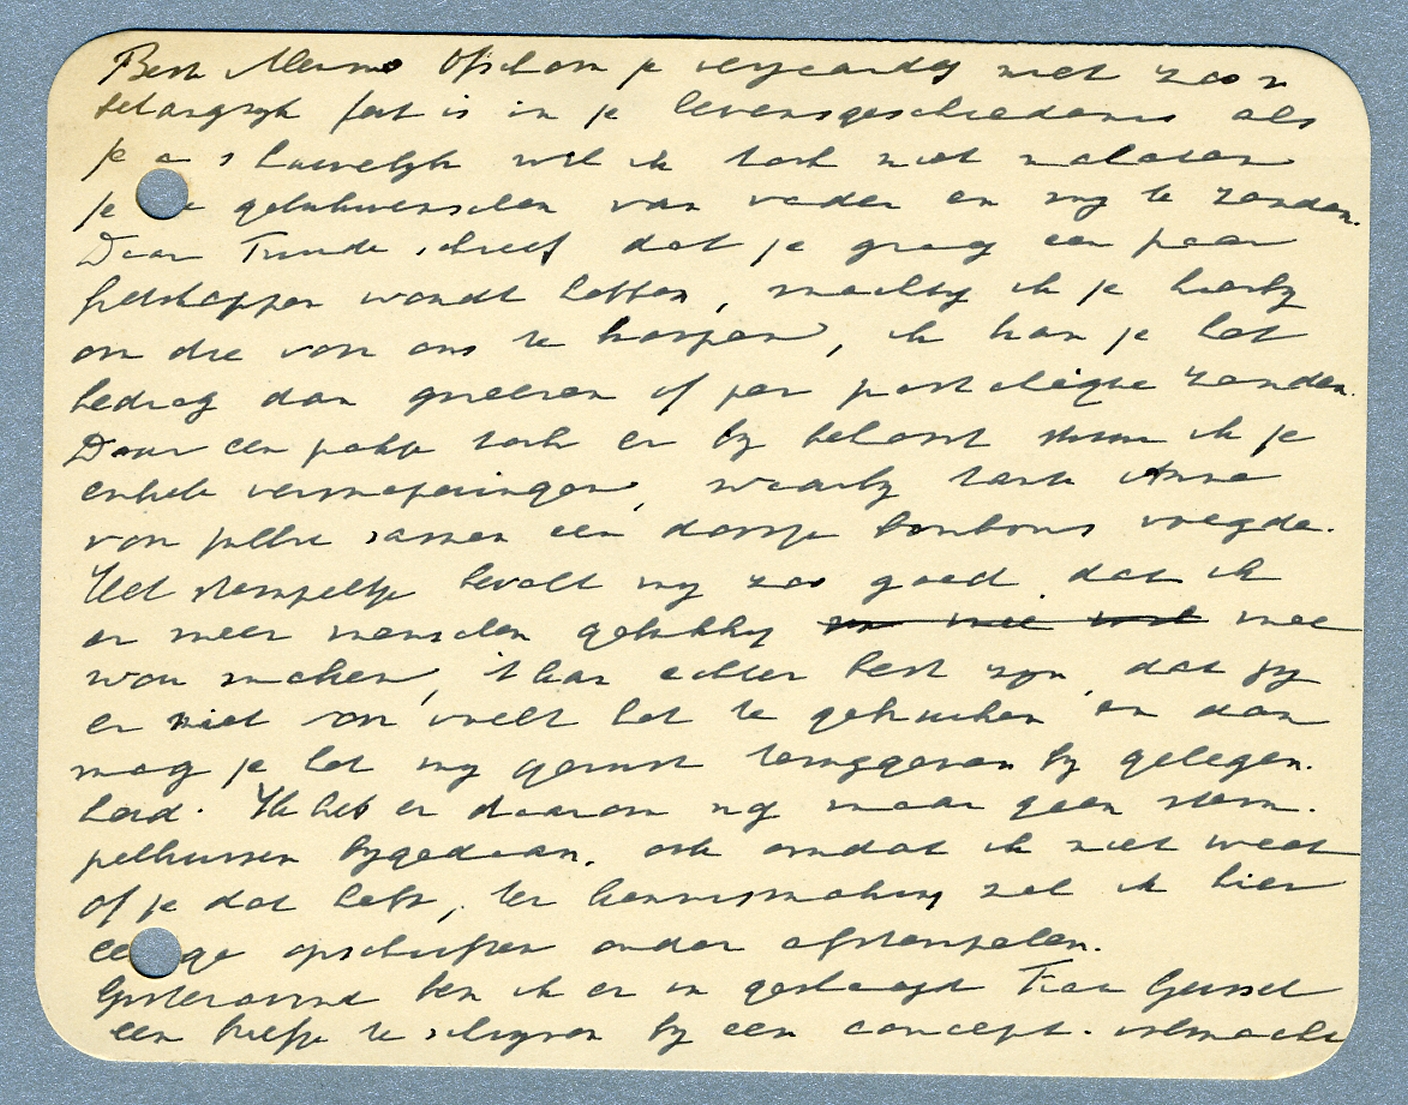 Beste Menno Ofschoon je verjaardag niet zoo'n
belangrijk feit is in je levensgeschiedenis als
je a s huwelijk wil ik toch niet nalaten
je e gelukwenschen van vader en mij te zenden.
Daar Truude schreef dat je graag een paar
fietstassen wondt hebben, machtig ik je hierbij
om die van ons te koopen, ik kan je het
bedrag dan gireeren of per postchèque zenden.
Daar een pakje toch er bij behoort stuur ik je
enkele versnaperingen, waarbij tante Anna
van Jullie samen een doosje bonbons voegde.
Het stempeltje bevalt mij zoo goed dat ik
er meer menschen gelukkig mee
wou maken, 't kan echter best zijn, dat jij
er niet van voelt het te gebruiken en dan
mag je het mij gerust teruggeven bij gelegen-
heid. Ik heb er daarom nog maar geen stem-
pelkussen bijgedaan, ook omdat ik niet weet
of je dat hebt, ter kennismaking zal ik hier
ee ge opschriften onder afstempelen.
Gisteravond ben ik er in geslaagd Trar
een briefje te schrijven bij een concept- volmacht